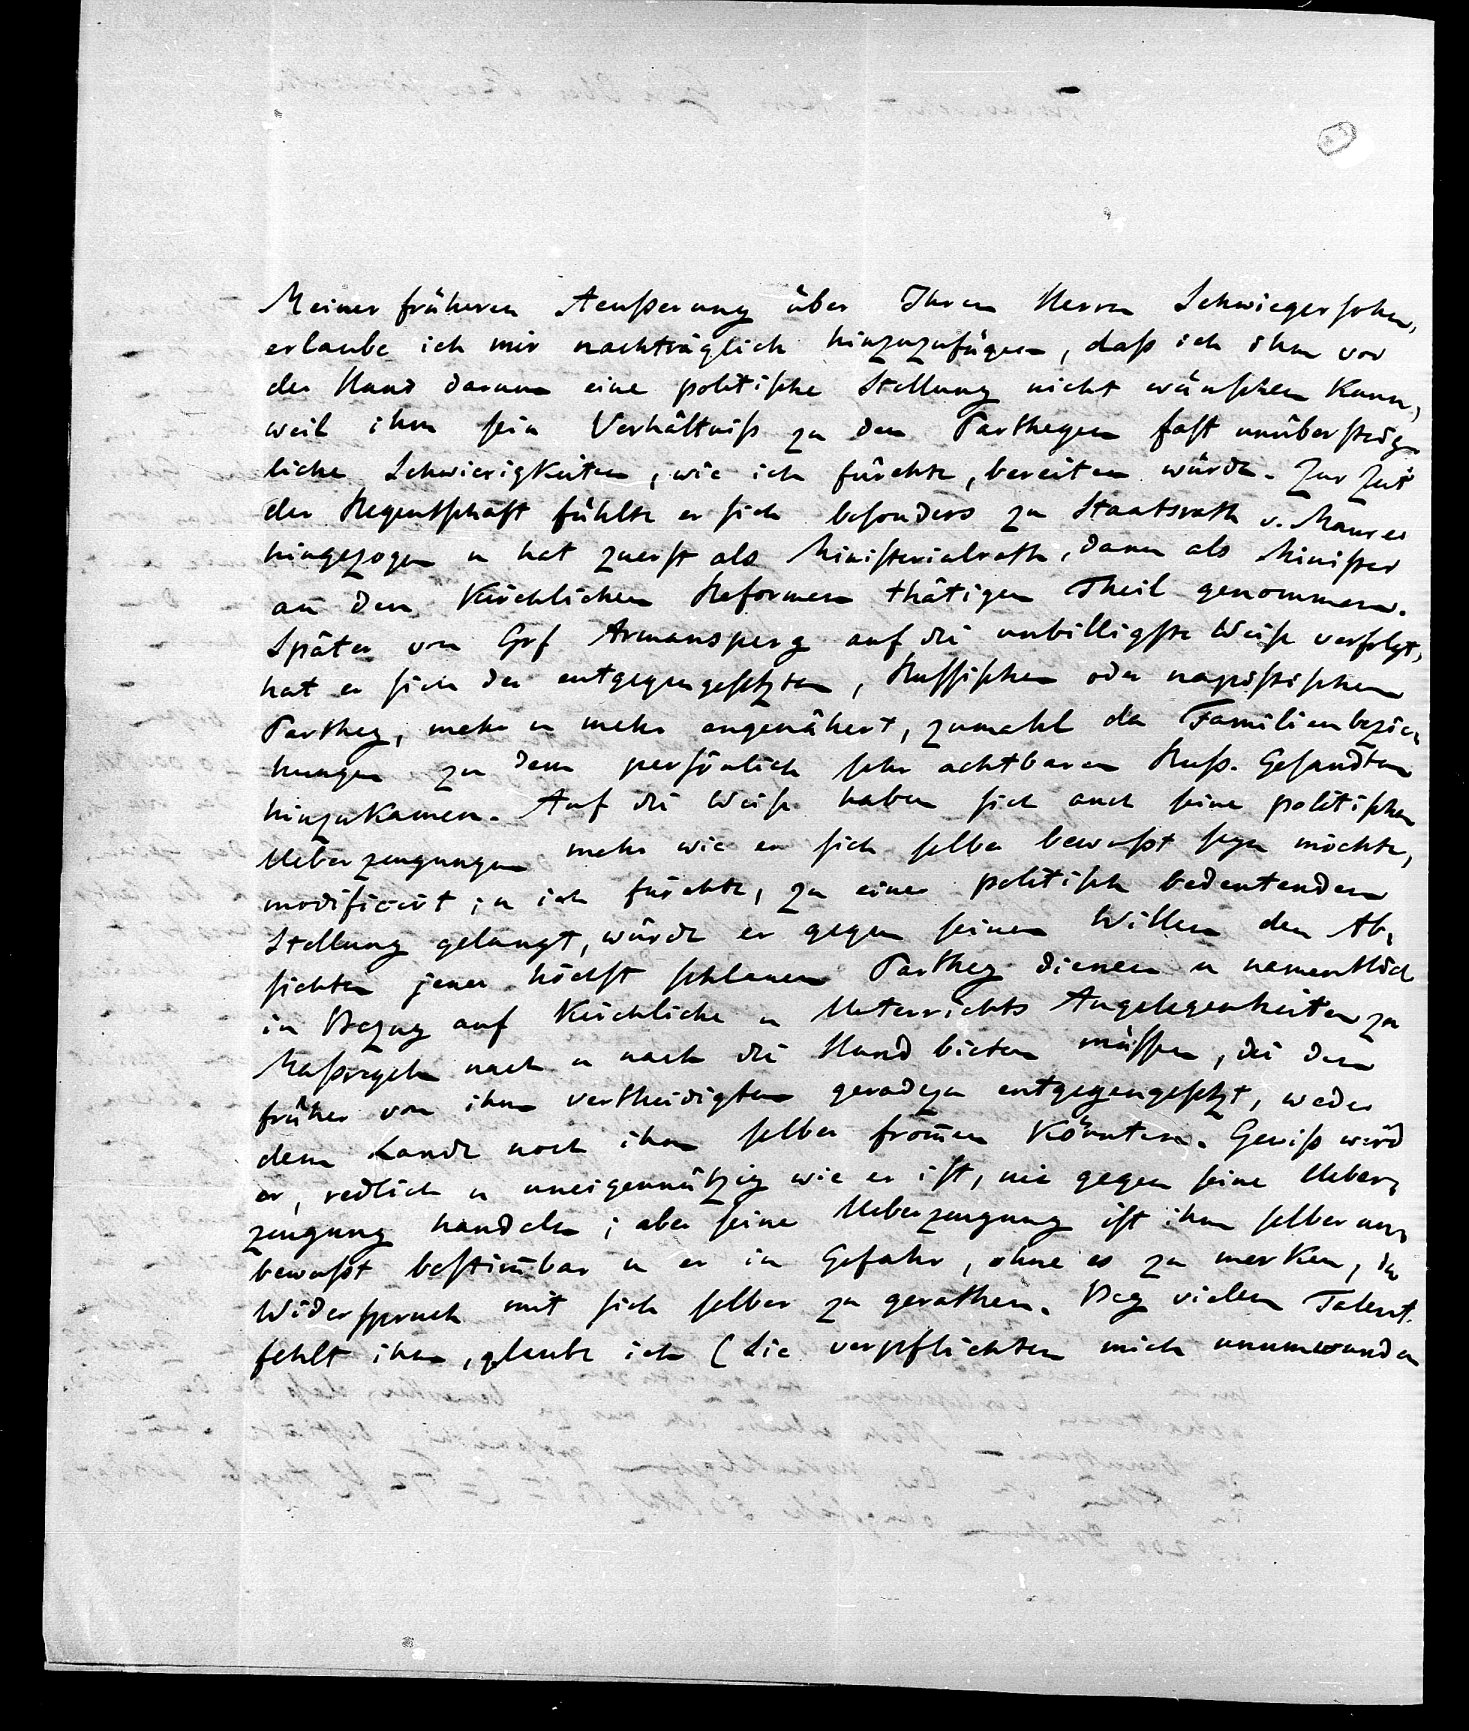 Meiner früheren Aeußerung über Ihren Herrn Schwiegersohn,
erlaube ich mir nachträglich hinzuzufügen, daß ich ihm vor
der Hand darum eine politische Stellung nicht wünschen kann,
weil ihm sein Verhältniß zu den Partheyen fast unübersteig-
liche Schwierigkeiten, wie ich fürchte, bereiten würde. Zur Zeit
der Regentschaft fühlte er sich besonders zu Staatsrath v. Maurer
hingezogen u hat zuerst als Ministerialrath, dann als Minister
an den Kirchlichen Reformen thätigen Theil genommen.
Später von Grf Armansperg auf die unbilligste Weise verfolgt,
hat er sich der entgegengesetzten, Russischen oder napistischen
Parthey, mehr u mehr angenähert, zumahl da Familienbezieh
hungen zu dem persönlich sehr achtbaren Russ. Gesandten
hinzukamen. Auf die Weise haben sich auch seine politischen
Ueberzeugungen mehr wie er sich selber bewußt seyn möchte,
modificirt; u ich fürchte, zu einer politisch bedeutenden
Stellung gelangt, würde er gegen seinen Willen den Ab-
sichten jener höchst schlauen Parthey dienen u namentlich
in Bezug auf Kirchliche u Unterrichts Angelegenheiten zu
Maßregeln nach u nach die Hand bieten müssen, die den
früher von ihm vertheidigten geradezu entgegengesetzt, weder
dem Lande noch ihm selber from̄en könnten. Gewiß wird
er, redlich u uneigennützig wie er ist, nie gegen seine Ueber-
zeugung handeln; aber seine Ueberzeugung ist ihm selber un-
bewußt bestim̄bar u er in Gefahr, ohne es zu merken, in
Widerspruch mit sich selber zu gerathen. Bey vielem Talent
fehlt ihm, glaube ich (Sie verpflichten mich unumwunden